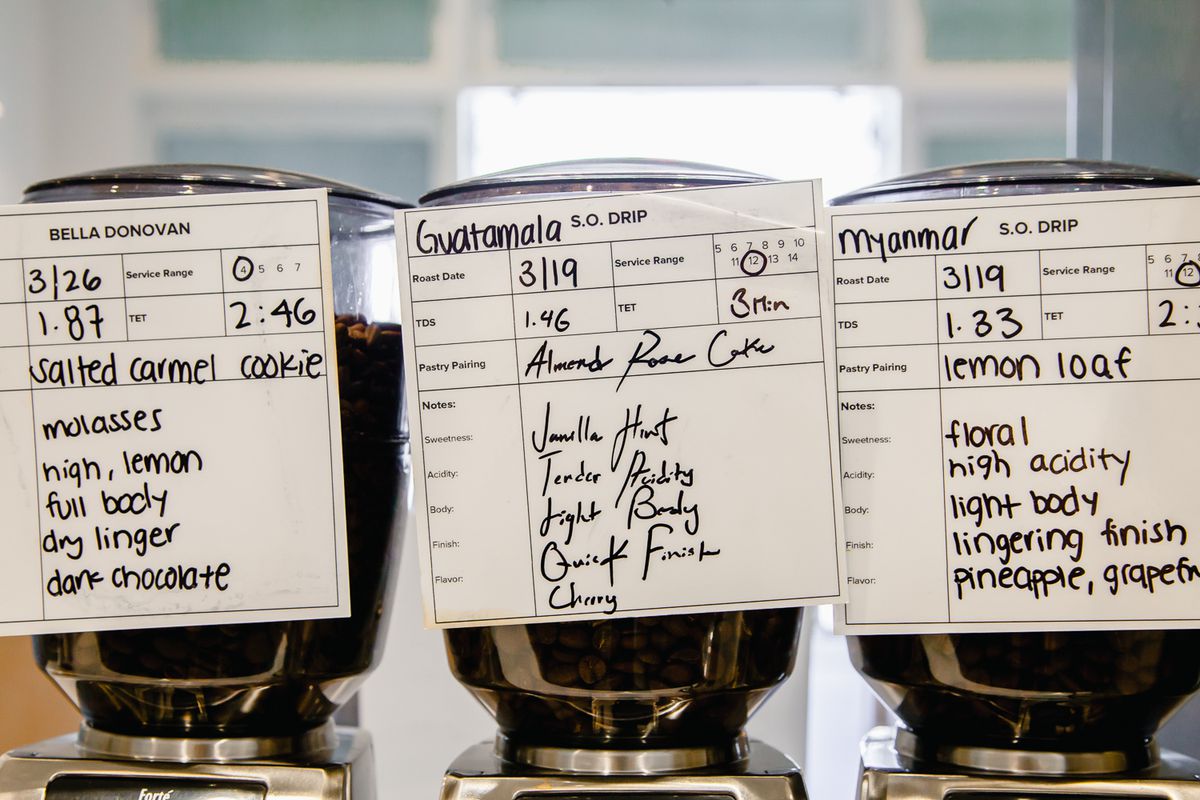 BELLA DONOVAN
3/26 Service Range ④ 5 6 7
1.87 TET 2:46
salted carmel cookie
molasses
high, lemon
full body
dry linger
dark chocolate
Forté
Guatamala S.O. DRIP
Roast Date 3/19 Service Range 5 6 7 8 9 10
11 ⑫ 13 14
TDS 1.46 TET 3 Min
Pastry Pairing Almond Rose Cake
Notes:
Sweetness: Vanilla Hint
Acidity: Tender Acidity
Body: Light Body
Finish: Quick Finish
Flavor: Cherry
Myanmar S.O. DRIP
Roast Date 3/19 Service Range 5 6 7
11 ⑫
TDS 1.33 TET 2:
Pastry Pairing lemon loaf
Notes:
Sweetness: floral
Acidity: high acidity
Body: light body
Finish: lingering finish
Flavor: pineapple,